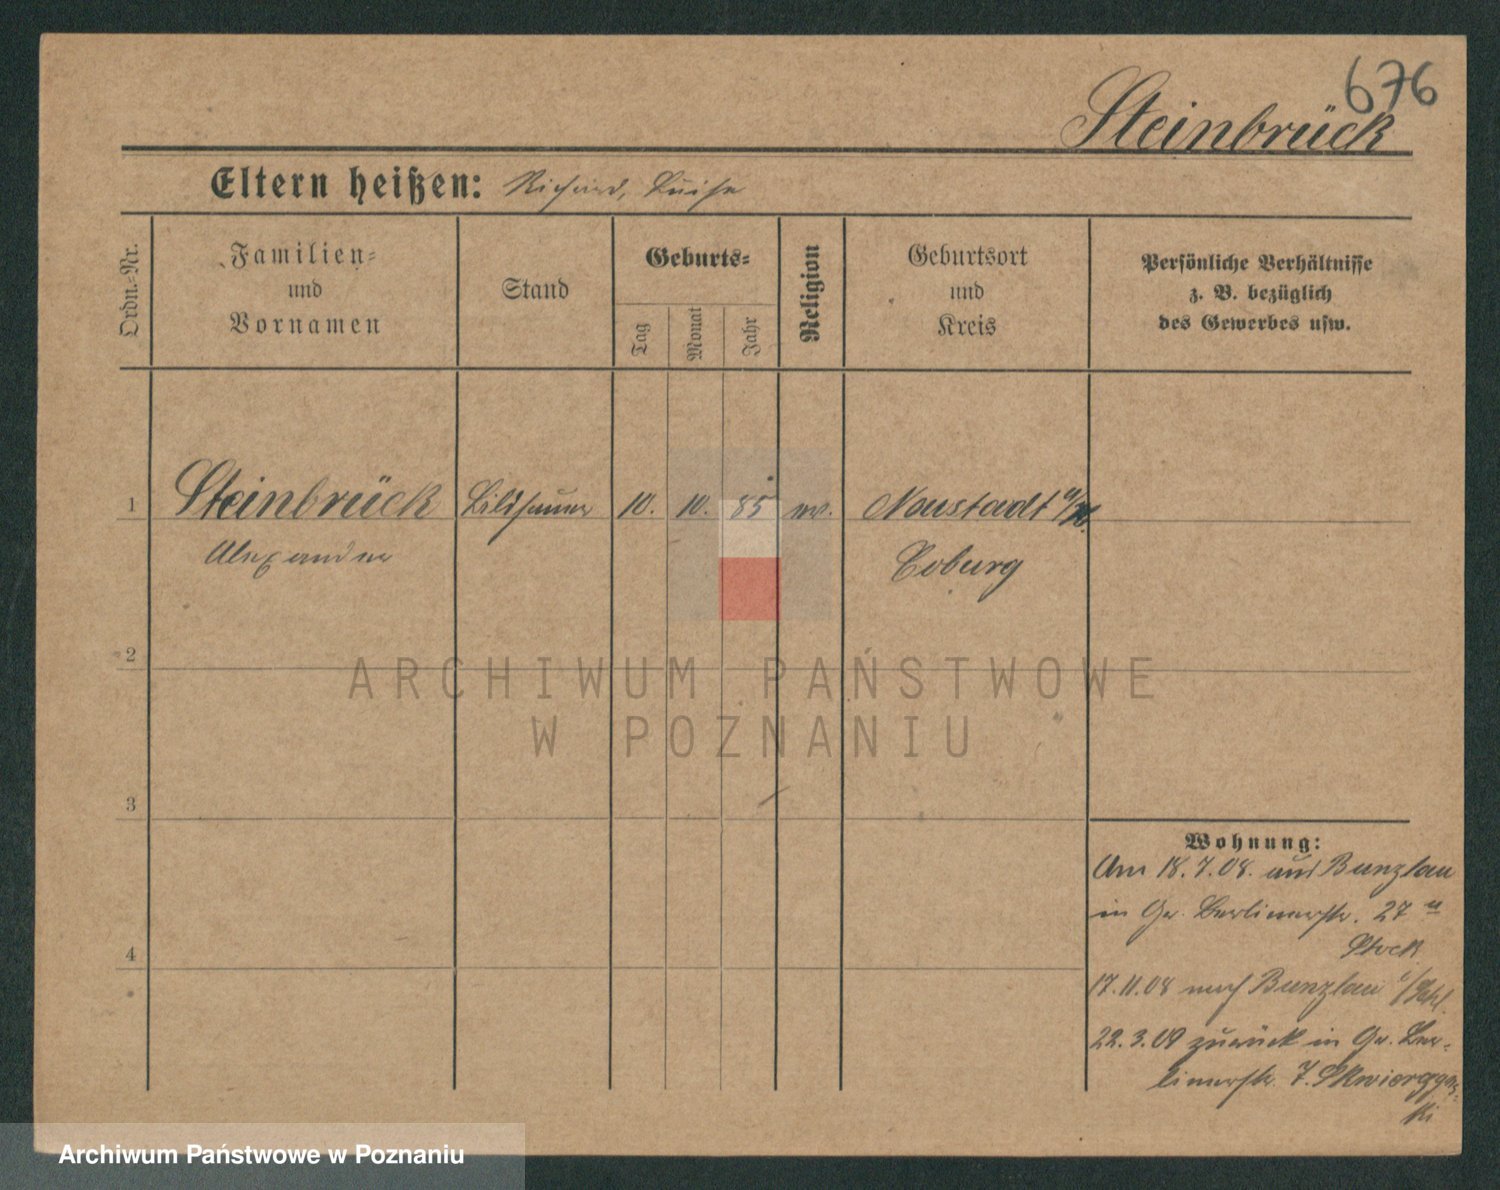 676
Steinbrück
Eltern heißen: Richard, Luise
Ordn.-Nr.
Familien- und Vornamen
Stand
Geburts-
Tag
Monat
Jahr
Religion
Geburtsort und Kreis
Persönliche Verhältnisse
z. B. bezüglich
des Gewerbes usw.
1 Steinbrück Bildhauer 10. 10. 85 ev. Neustadt a/H.
Alexander Coburg
2
3
4
ARCHIWUM PAŃSTWOWE
W POZNANIU
Wohnung:
Am 18.7.08. aus Bunzlau
in Gr. Berlinerstr. 27 II
Stock
17.11.08 nach Bunzlau i/Schl.
22.3.09 zurück in Gr. Ber-
linerstr. 7.
Archiwum Państwowe w Poznaniu